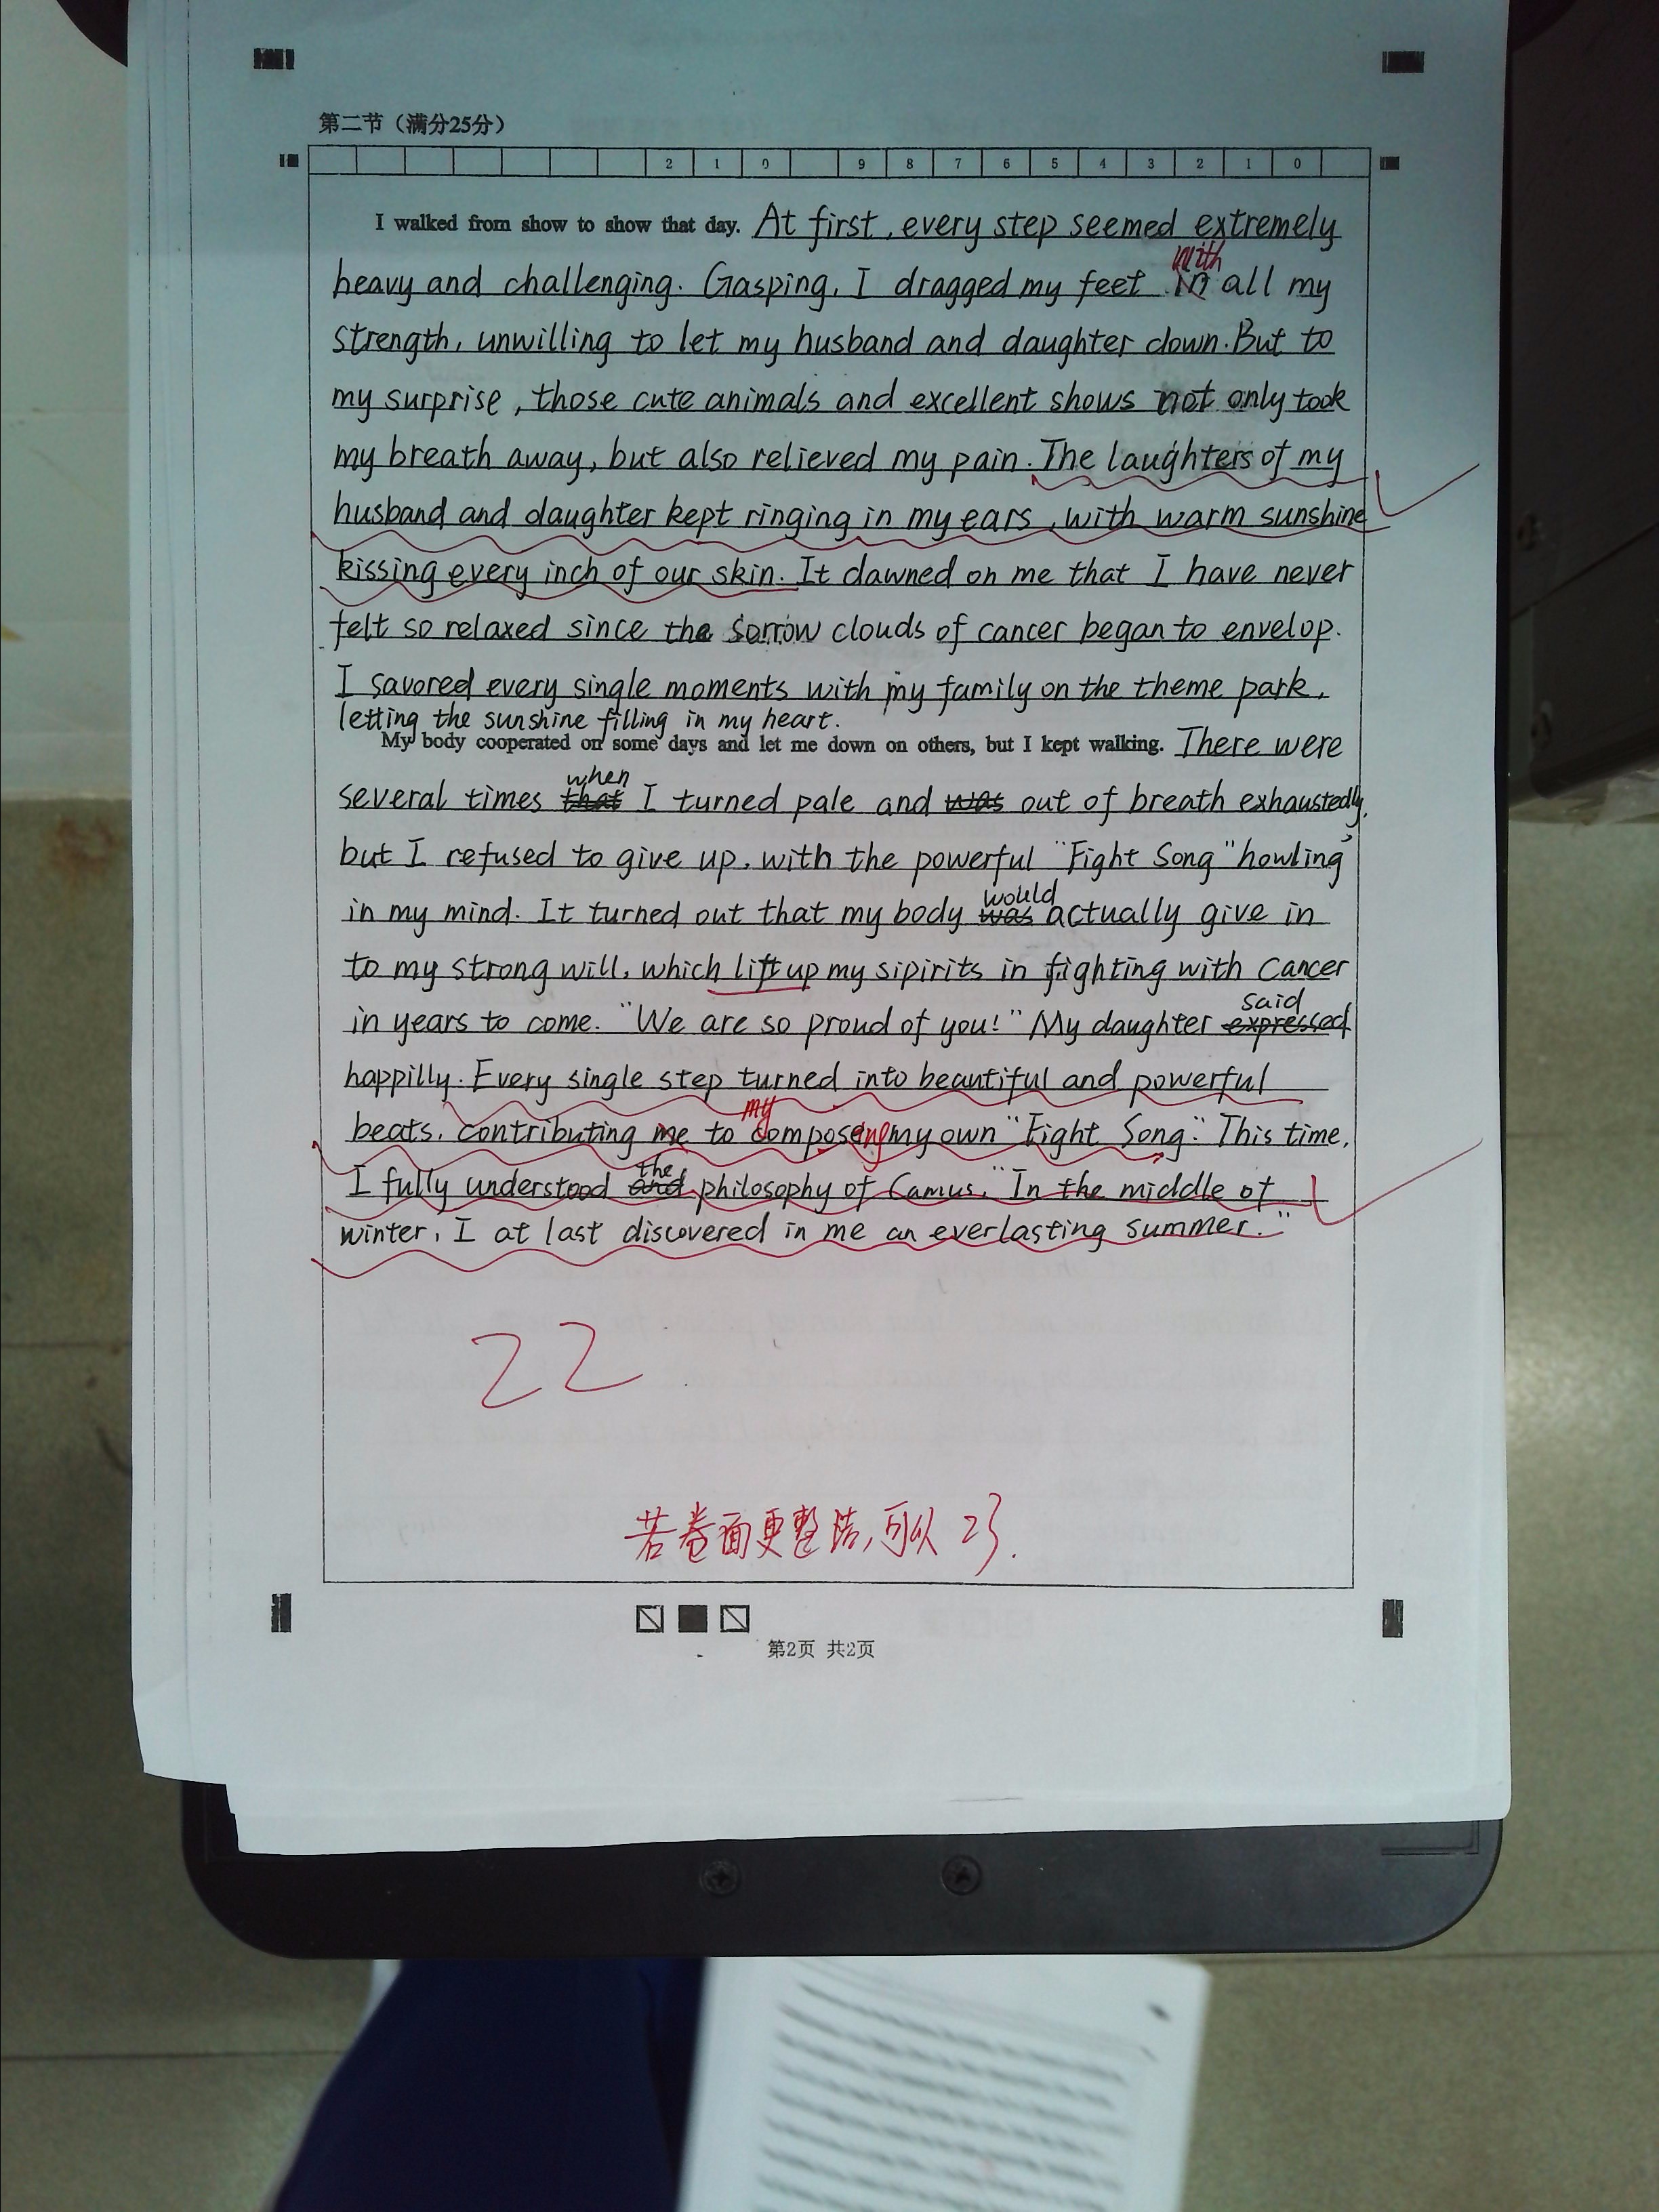 第二节（满分25分）
2 1 0 9 8 7 6 5 4 3 2 1 0
I walked from show to show that day. At first, every step seemed extremely
with
heavy and challenging. Gasping, I dragged my feet in all my
strength, unwilling to let my husband and daughter down. But to
my surprise, those cute animals and excellent shows not only took
my breath away, but also relieved my pain. The laughters of my
husband and daughter kept ringing in my ears, with warm sunshine
kissing every inch of our skin. It dawned on me that I have never
felt so relaxed since the sorrow clouds of cancer began to envelop.
I savored every single moments with my family on the theme park,
letting the sunshine filling in my heart.
My body cooperated on some days and let me down on others, but I kept walking. There were
when
several times that I turned pale and was out of breath exhaustedly,
but I refused to give up, with the powerful "Fight Song" howling
would
in my mind. It turned out that my body was actually give in
to my strong will, which lift up my sipirits in fighting with cancer
said
in years to come. "We are so proud of you!" My daughter expressed
happilly. Every single step turned into beautiful and powerful
my
beats, contributing me to composing my own "Fight Song." This time,
the
I fully understood and philosophy of Camus, "In the middle of
winter, I at last discovered in me an everlasting summer."
22
若卷面更整洁,可以23.
第2页 共2页